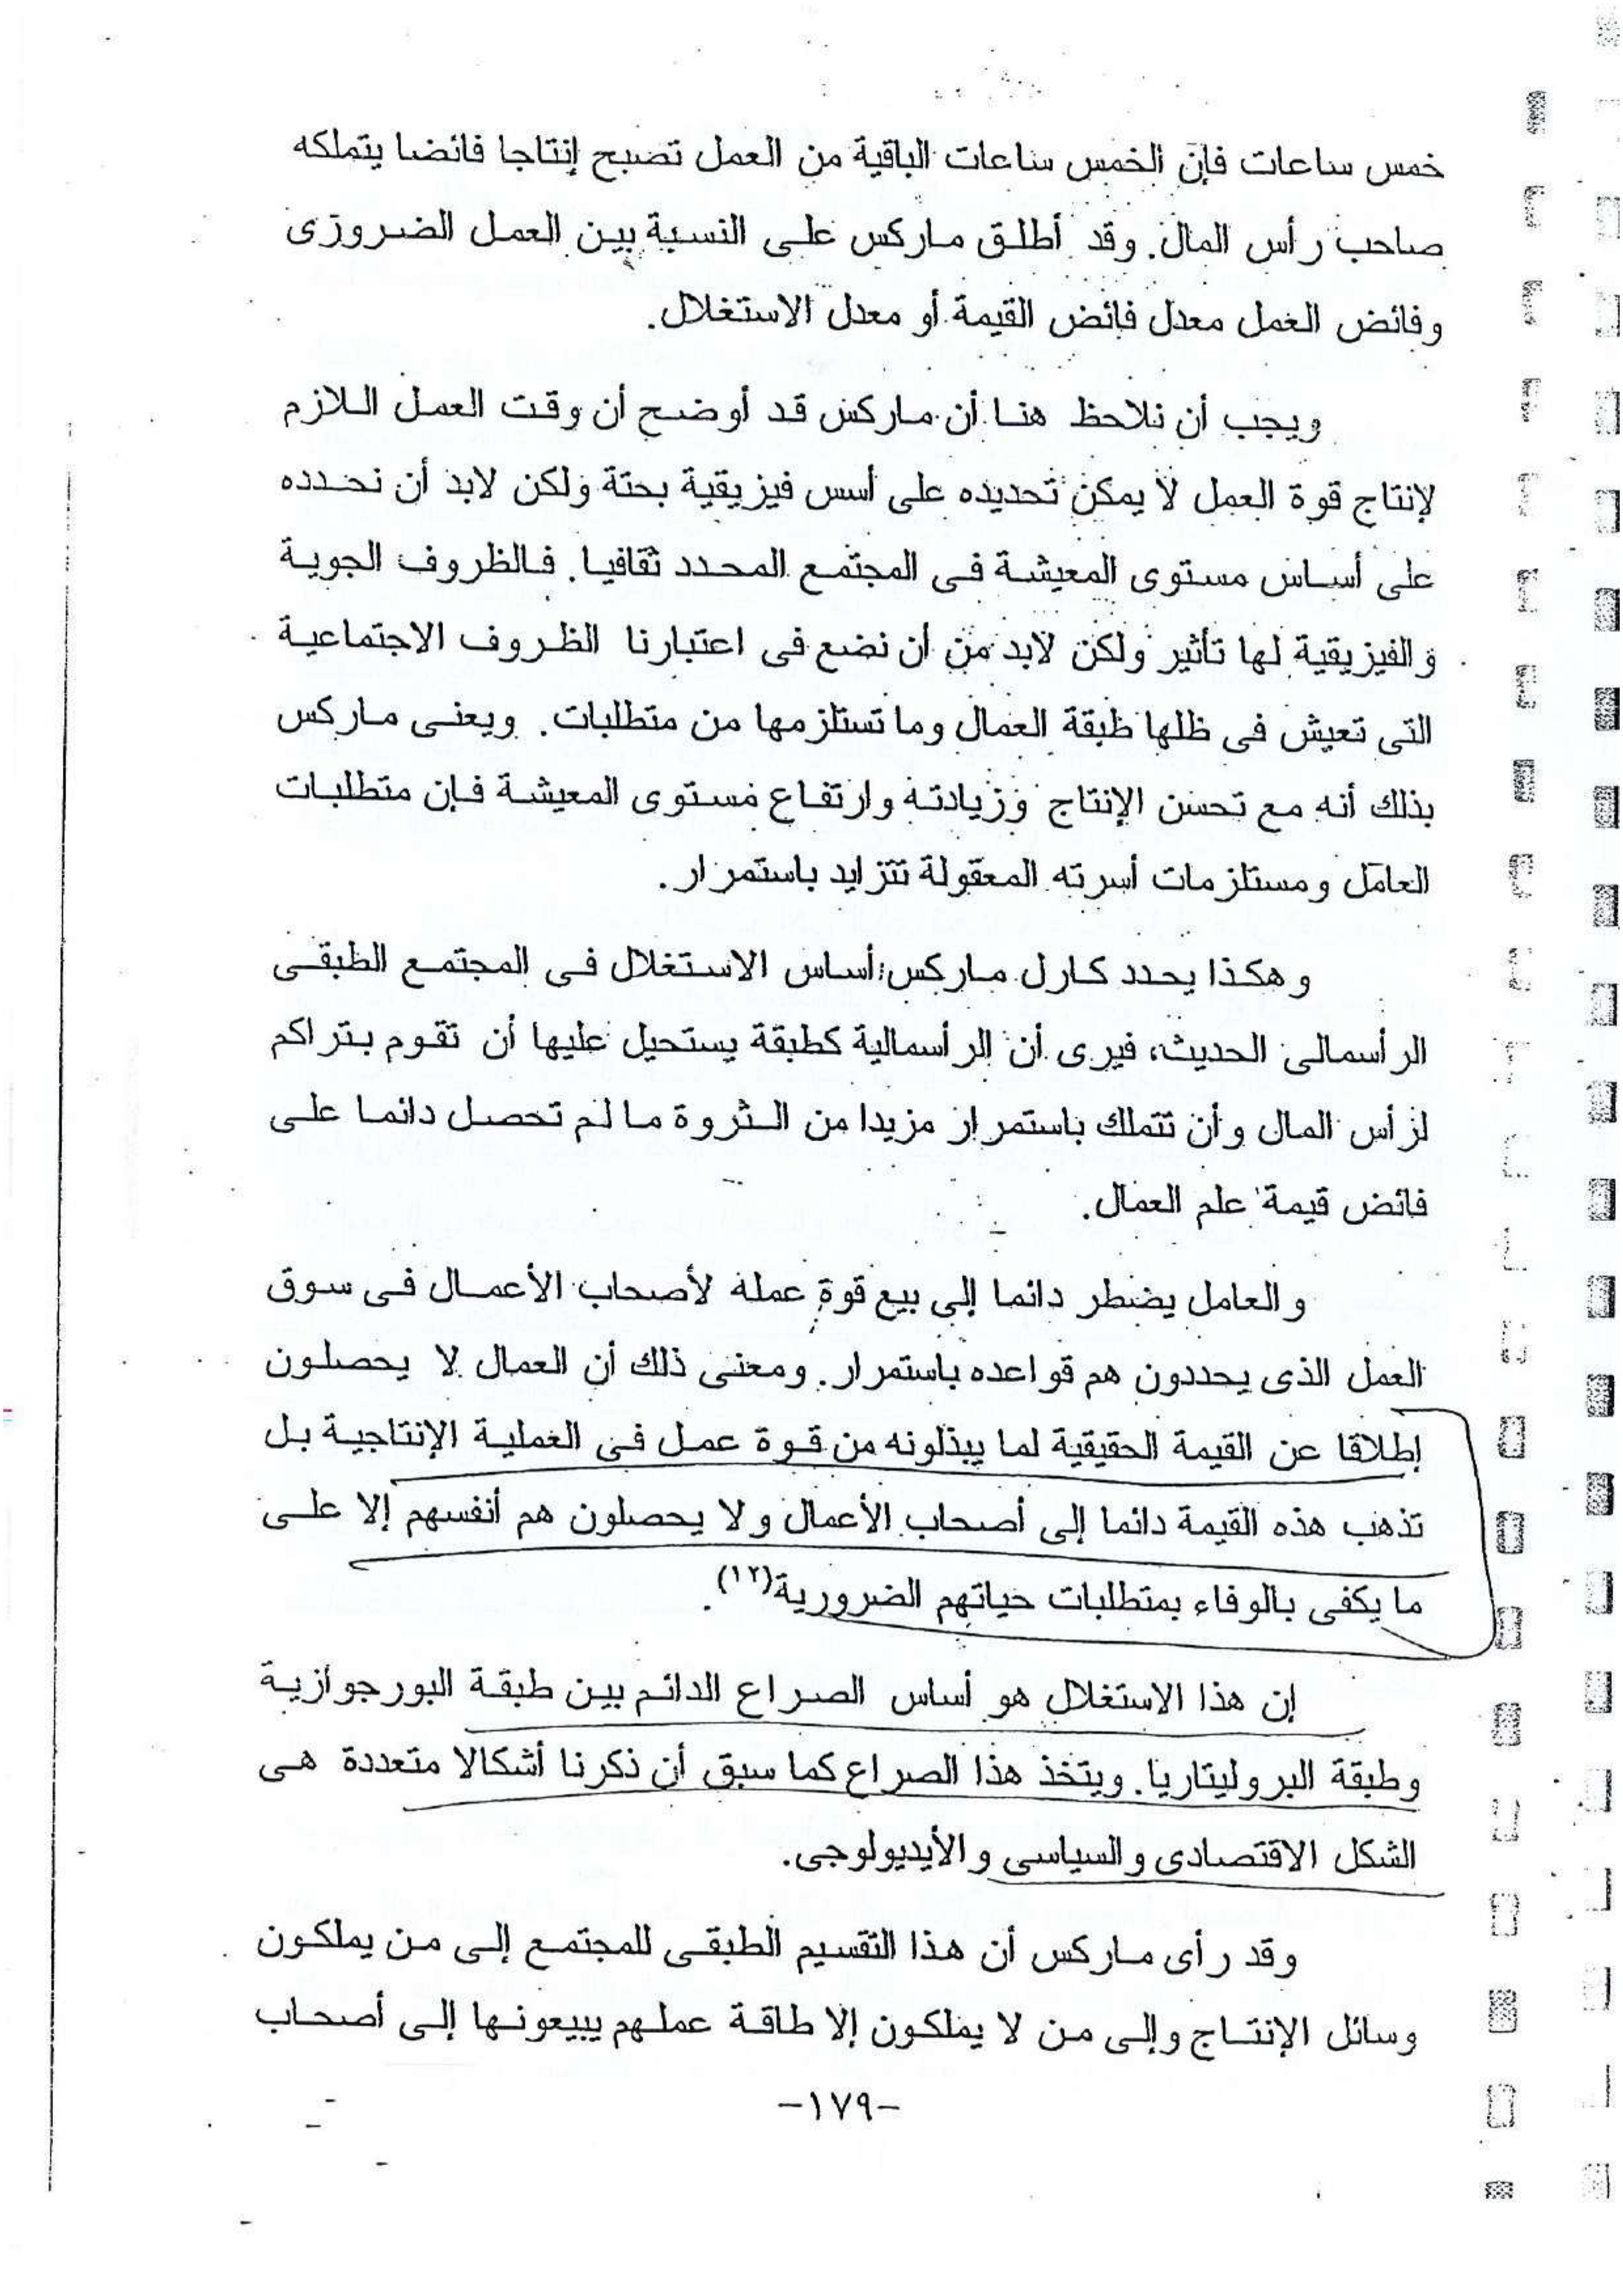 خمس ساعات فإن الخمس ساعات الباقية من العمل تصبح إنتاجا فائضا يتملكه
صاحب رأس المال. وقد أطلق ماركس على النسبة بين العمل الضرورى
وفائض العمل معدل فائض القيمة أو معدل الاستغلال.
ويجب أن نلاحظ هنا أن ماركس قد أوضح أن وقت العمل اللازم
لإنتاج قوة العمل لا يمكن تحديده على أسس فيزيقية بحتة ولكن لابد أن نحدده
على أساس مستوى المعيشة فى المجتمع المحدد ثقافيا. فالظروف الجوية
والفيزيقية لها تأثير ولكن لابد من أن نضع فى اعتبارنا الظروف الاجتماعية
التى تعيش فى ظلها طبقة العمال وما تستلزمها من متطلبات. ويعنى ماركس
بذلك أنه مع تحسن الإنتاج وزيادته وارتفاع مستوى المعيشة فإن متطلبات
العامل ومستلزمات أسرته المعقولة تتزايد باستمرار.
وهكذا يحدد كارل ماركس أساس الاستغلال فى المجتمع الطبقى
الرأسمالى الحديث، فيرى أن الرأسمالية كطبقة يستحيل عليها أن تقوم بتراكم
لرأس المال وأن تتملك باستمرار مزيدا من الثروة ما لم تحصل دائما على
فائض قيمة علم العمال.
والعامل يضطر دائما إلى بيع قوة عمله لأصحاب الأعمال فى سوق
العمل الذى يحددون هم قواعده باستمرار. ومعنى ذلك أن العمال لا يحصلون
إطلاقا عن القيمة الحقيقية لما يبذلونه من قوة عمل فى العملية الإنتاجية بل
تذهب هذه القيمة دائما إلى أصحاب الأعمال ولا يحصلون هم أنفسهم إلا على
ما يكفى بالوفاء بمتطلبات حياتهم الضرورية(١٢).
إن هذا الاستغلال هو أساس الصراع الدائم بين طبقة البورجوازية
وطبقة البروليتاريا. ويتخذ هذا الصراع كما سبق أن ذكرنا أشكالا متعددة هى
الشكل الاقتصادى والسياسى والأيديولوجى.
وقد رأى ماركس أن هذا التقسيم الطبقى للمجتمع إلى من يملكون
وسائل الإنتاج وإلى من لا يملكون إلا طاقة عملهم يبيعونها إلى أصحاب
-١٧٩-